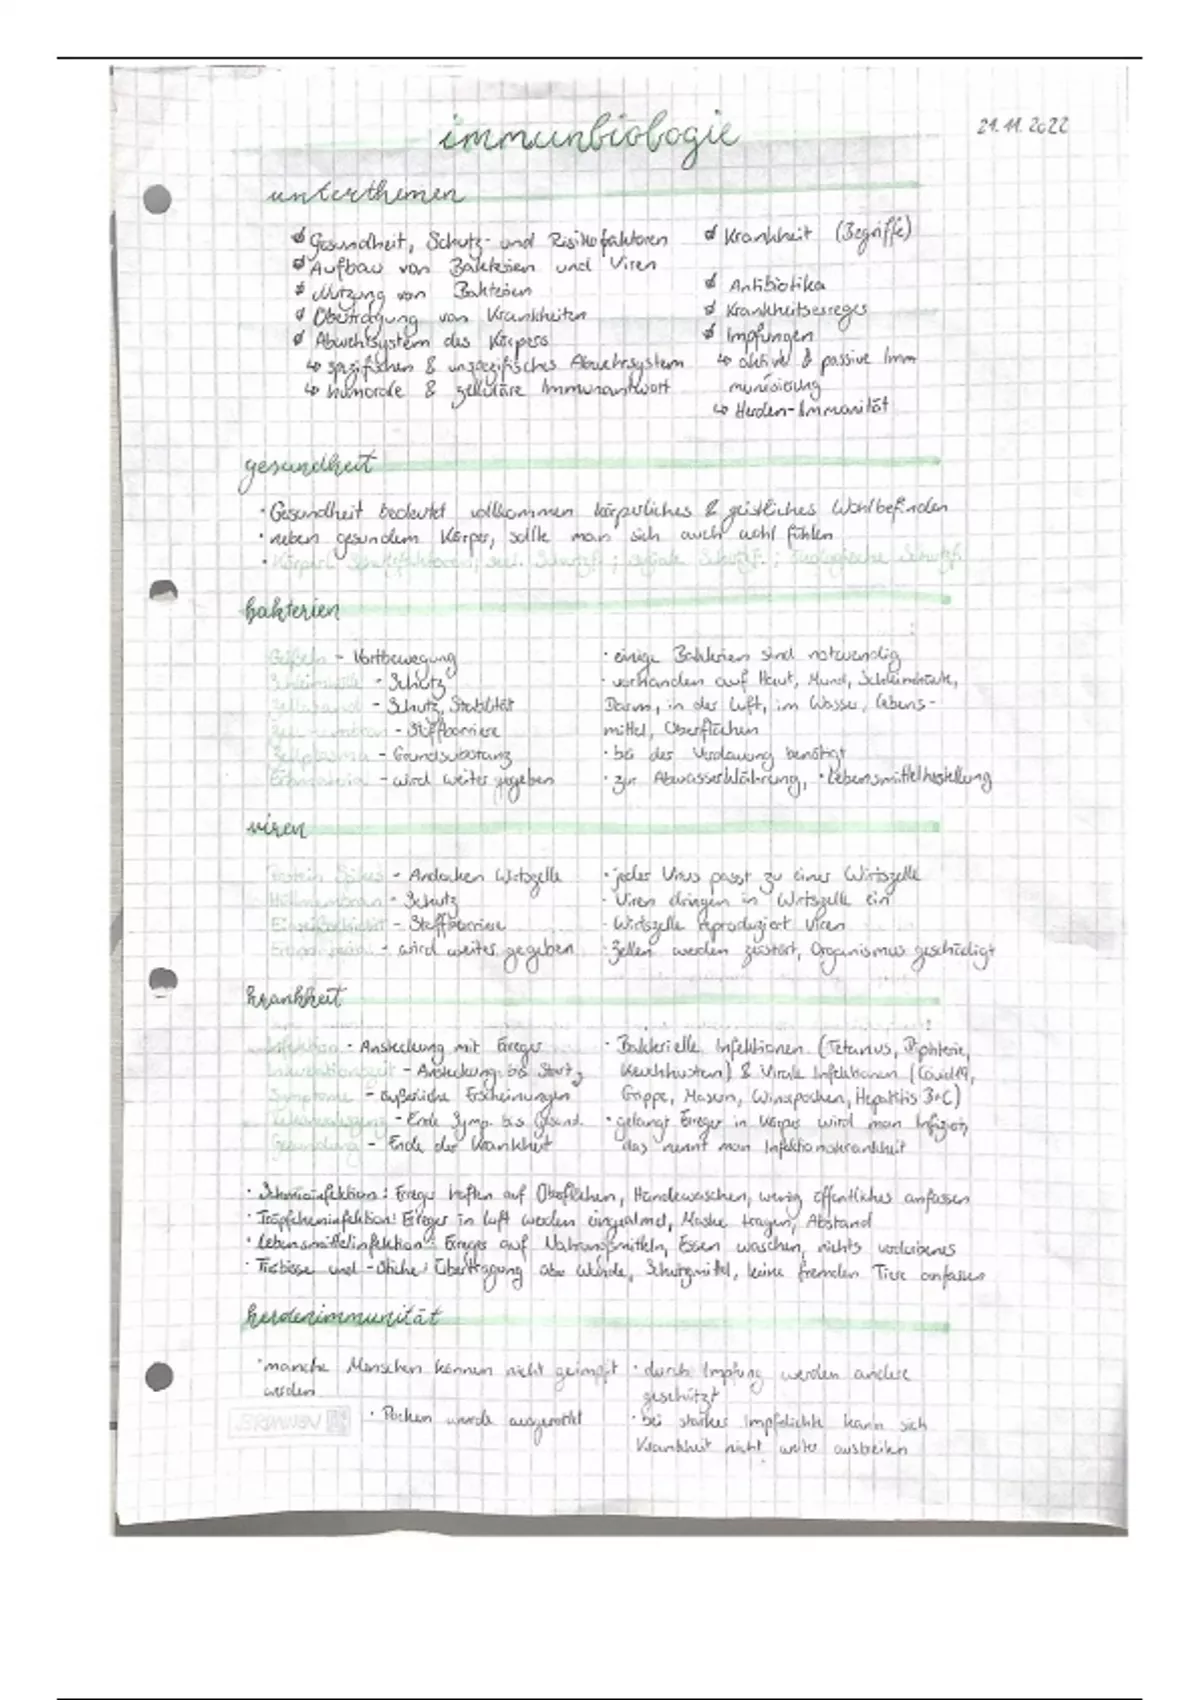 immunbiologie
21.11.2022
unterthemen
Gesundheit, Schutz- und Risikofaktoren
Aufbau von Bakterien und Viren
Nutzung von Bakterien
Übertragung von Krankheiten
Abwehrsystem des Körpers
↳ spezifischen & unspezifisches Abwehrsystem
↳ humorale & zelluläre Immunantwort
Krankheit (Begriffe)
Antibiotika
Krankheitserreger
Impfungen
↳ aktive & passive Imm
munisierung
↳ Herden-Immunität
gesundheit
· Gesundheit bedeutet vollkommen körperliches & geistliches Wohlbefinden
· neben gesundem Körper, sollte man sich auch wohl fühlen
· Körperl. Schutzfaktoren; Schutzf.; soziale Schutzf.; Ökologische Schutzf.
bakterien
Geißeln - Fortbewegung
- Schutz
Zellwand - Schutz, Stabilität
- Stoffbarriere
Zellplasma - Grundsubstanz
- wird weiter gegeben
· einige Bakterien sind notwendig
· vorhanden auf Haut, Mund, Schleimhäute,
Darm, in der Luft, im Wasser, Lebens-
mittel, Oberflächen
· bei der Verdauung benötigt
· zur Abwasserklährung, · Lebensmittelherstellung
viren
Protein Spikes - Andocken Wirtszelle
Hüllmembran - Schutz
- Stoffbarriere
- wird weiter gegeben
· jedes Virus passt zu einer Wirtszelle
· Viren dringen in Wirtszelle ein
· Wirtszelle reproduziert Viren
· Zellen werden zerstört, Organismus geschädigt
krankheit
Infektion - Ansteckung mit Erreger
Inkubationszeit - Ansteckung bis Start
Symptome - äußerliche Erscheinungen
- Ende Symp. bis Gesund.
Gesundung - Ende der Krankheit
· Bakterielle Infektionen (Tetanus, Diphterie,
Keuchhusten) & Virale Infektionen (Covid19,
Grippe, Masern, Windpocken, Hepatitis B+C)
· gelangt Erreger in Körper wird man infiziert,
das nennt man Infektionskrankheit
· Schmierinfektion: Erreger haften auf Oberflächen, Händewaschen, wenig öffentliches anfassen
· Tröpfcheninfektion: Erreger in Luft werden eingeatmet, Maske tragen, Abstand
· Lebensmittelinfektion: Erreger auf Nahrungsmitteln, Essen waschen, nichts verdorbenes
· Tierbisse und -stiche: Übertragung über Wunde, Schutzmittel, keine fremden Tiere anfassen
herdenimmunität
· manche Menschen können nicht geimpft
werden
· Pocken wurde ausgerottet
· durch Impfung werden andere
geschützt
· bei starker Impfdichte kann sich
Krankheit nicht weiter ausbreiten